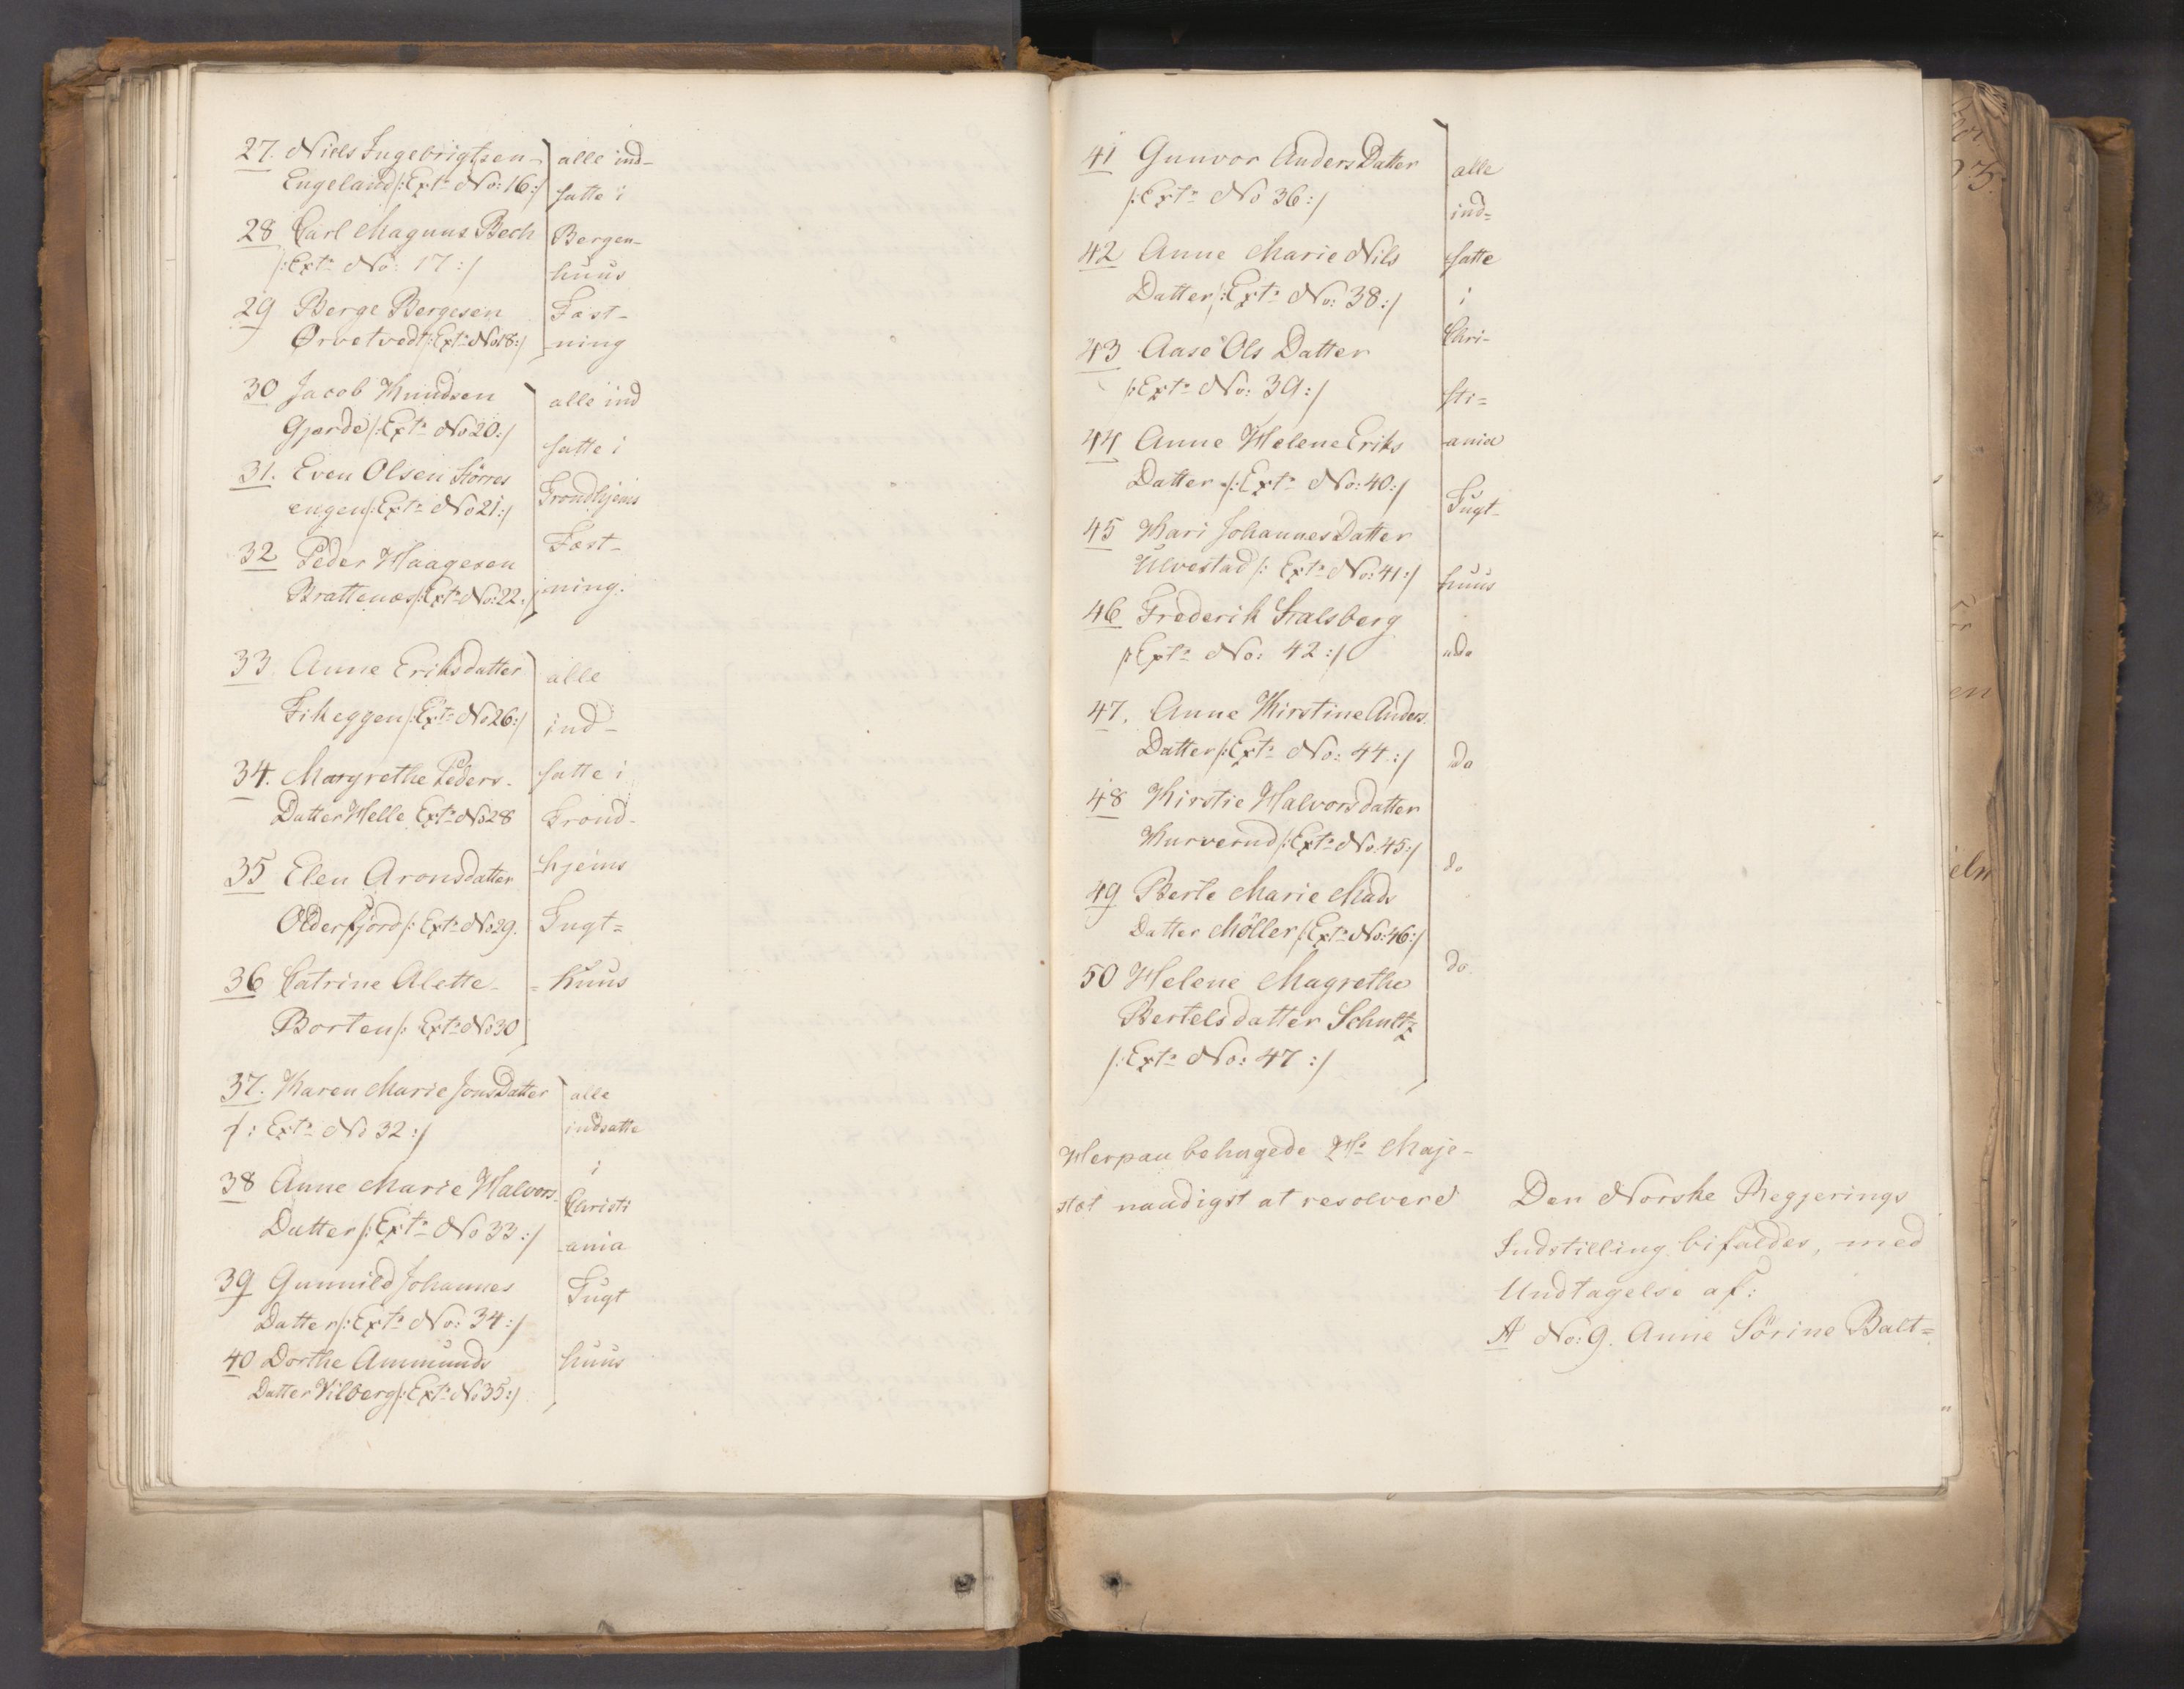 27. Niels Ingebrigtsen
Engeland /: Ext: No: 16 :/
28 Carl Magnus Bech
/: Ext: No: 17 :/
29 Berge Bergesen
Ørvetvedt /: Ext: No 18 :/
alle ind-
satte i
Bergen-
huus
Fæst-
ning
30 Jacob Knudsen
Gjerde /: Ext: No 20 :/
31. Even Olsen Störres
engen /: Ext: No 21 :/
32 Peder Haagesen
Brattenæs /: Ext: No: 22 :/
alle ind
satte i
Trondhjems
Fæst-
ning.
33. Anne Eriksdatter
Fikeggen /: Ext: No 26 :/
34. Margrethe Peders-
Datter Helle Ext: No 28
35 Elen Aronsdatter
Olderfjord /: Ext: No 29.
36 Catrine Alette
Borten /: Ext: No 30
alle
ind-
satte i
Trond-
hjems
Tugt=
=huus
37. Karen Marie JonsDatter
/: Ext: No 32 :/
38 Anne Marie Halvors
Datter /: Ext: No 33 :/
39 Gunnild Johannes
Datter /: Ext: No: 34 :/
40 Dorthe Ammunds
Datter Vilberg /: Ext: No 35 :/
alle
indsatte
i
Christi
ania
Tugt
huus
41 Gunvor AndersDatter
/: Ext: No 36 :/
42 Anne Marie Nils
Datter /: Ext: No: 38 :/
43 Aase Ols Datter
/: Ext: No: 39 :/
44 Anne Helene Eriks
Datter /: Ext: No: 40 :/
45 Kari JohannesDatter
Ulvestad /: Ext: No: 41 :/
46 Frederik Stalsberg
/: Ext: No: 42 :/
47. Anne Kirstine Anders
Datter /: Ext: No: 44 :/
48 Kirstie Halvorsdatter
Kurverud /: Ext: No: 45 :/
49 Berte Marie Mads
Datter Möller /: Ext: No: 46 :/
50 Helene Magrethe
Bertelsdatter Schultz
/: Ext: No: 47 :/
alle
ind=
=satte
i
Chri-
sti=
ania
Tugt-
huus
do
do
do
Herpaa behagede Hs Maje-
stæt naadigst at resolvere
Den Norske Regjerings
Indstilling bifaldes, med
Undtagelse af:
A No: 9. Anne Sörine Balt=